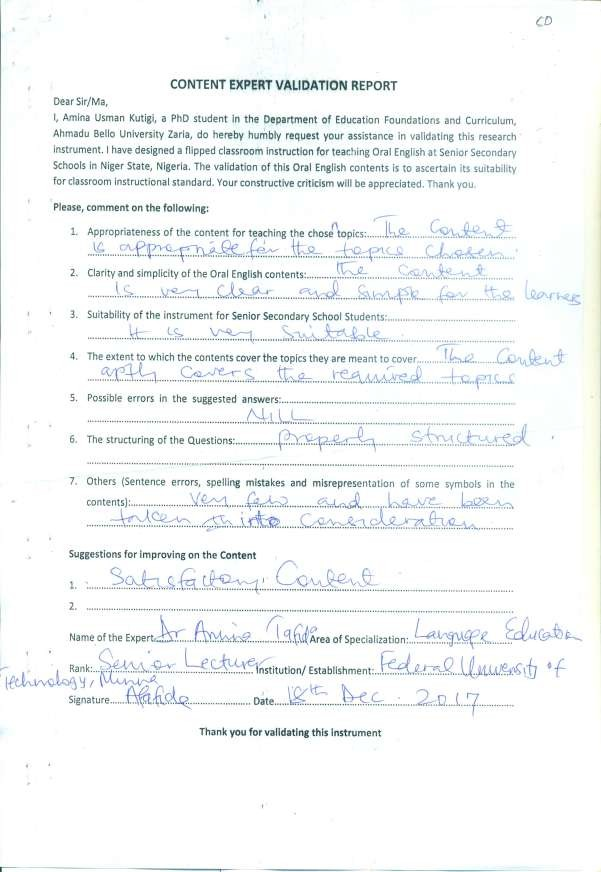 CD
CONTENT EXPERT VALIDATION REPORT
Dear Sir/Ma,
I, Amina Usman Kutigi, a PhD student in the Department of Education Foundations and Curriculum,
Ahmadu Bello University Zaria, do hereby humbly request your assistance in validating this research
instrument. I have designed a flipped classroom instruction for teaching Oral English at Senior Secondary
Schools in Niger State, Nigeria. The validation of this Oral English contents is to ascertain its suitability
for classroom instructional standard. Your constructive criticism will be appreciated. Thank you.
Please, comment on the following:
1. Appropriateness of the content for teaching the chose topics: The Content
n
is appropriate for the topics chosen.
2. Clarity and simplicity of the Oral English contents: The Content
Is very clear and simple for the learners
3. Suitability of the instrument for Senior Secondary School Students:
It is very Suitable
4. The extent to which the contents cover the topics they are meant to cover The Content
aptly covers the required topics
5. Possible errors in the suggested answers:
NILL
6. The structuring of the Questions: properly structured
7. Others (Sentence errors, spelling mistakes and misrepresentation of some symbols in the
contents): Very few and have been
taken into consideration
Suggestions for improving on the Content
1. Satisfactory Content
2.
Name of the Expert Dr Amina Tafida Area of Specialization: Language Education
Rank: Senior Lecturer Institution/ Establishment: Federal University of
Technology, Minna
Signature Atafida Date 18th Dec. 2017
Thank you for validating this instrument